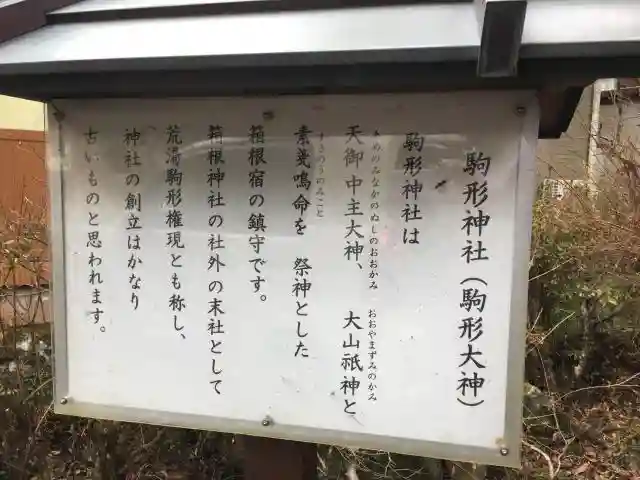 駒形神社(駒形大神)
駒形神社は
あめのみなかのぬしのおおかみ おおやまずみのかみ
天御中主大神、大山祇神と
すさのうのみこと
素戔鳴命を 祭神とした
箱根宿の鎮守です。
箱根神社の社外の末社として
荒湯駒形権現とも称し、
神社の創立はかなり
古いものと思われます。